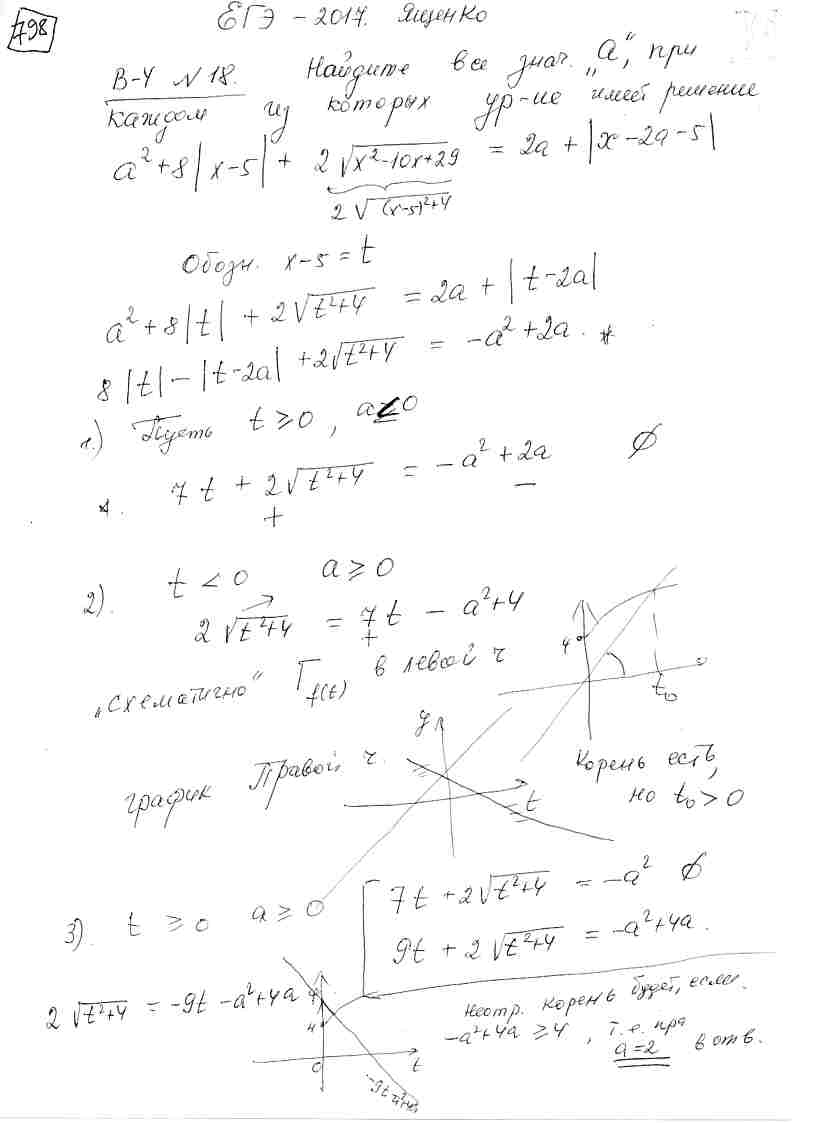 798
ЕГЭ – 2017. Ященко
В-4 N 18. Найдите все знач. "a", при
каждом из которых ур-ие имеет решение
a²+8|x-5| + 2√(x²-10x+29) = 2a + |x-2a-5|
2√((x-5)²+4)
Обозн. x-5 = t
a²+8|t| + 2√(t²+4) = 2a + |t-2a|
8|t| - |t-2a| + 2√(t²+4) = -a²+2a. *
1.) Пусть t ≥ 0, a ≤ 0
*. 7t + 2√(t²+4) = -a² + 2a ∅
+ –
2). t < 0 a ≥ 0
2√(t²+4) = 7t - a²+4
+
"схематично" Г f(t) в левой ч
4
t₀
график Правой ч.
y
t
Корень есть,
но t₀ > 0
3). t ≥ 0 a ≥ 0
7t + 2√(t²+4) = -a² ∅
9t + 2√(t²+4) = -a²+4a.
2√(t²+4) = -9t - a²+4a
4
0
t
Неотр. корень будет, если.
-a²+4a ≥ 4, т.е. при
a=2 в отв.